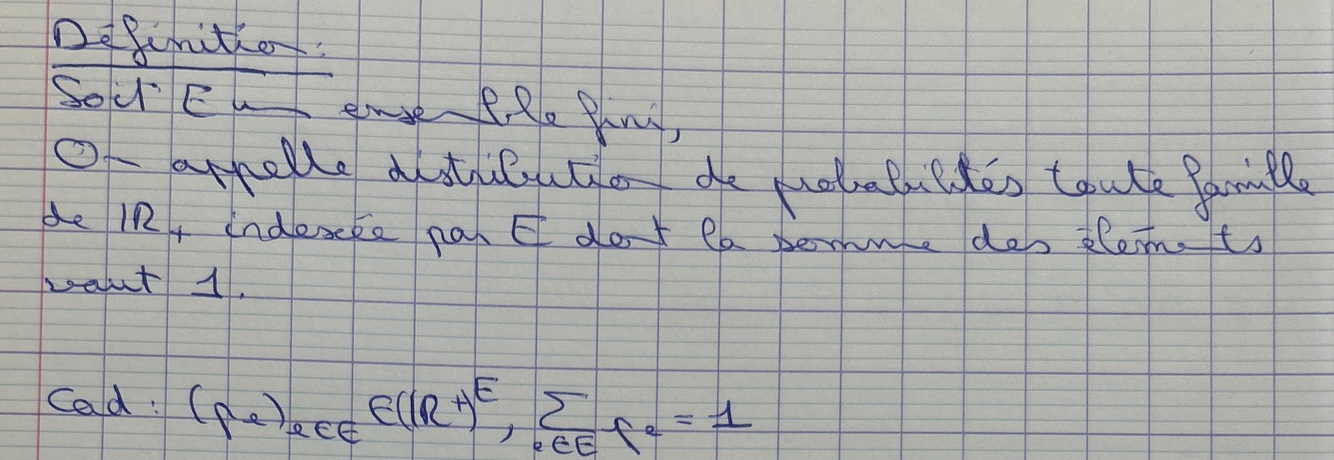 Définition:
Soit E un ensemble fini,
On appelle distribution de probabilités toute famille
de IR+ indexée par E dont la somme des éléments
vaut 1.
Cad : (pe)e∈E ∈(IR+)^E, ∑e∈E pe = 1